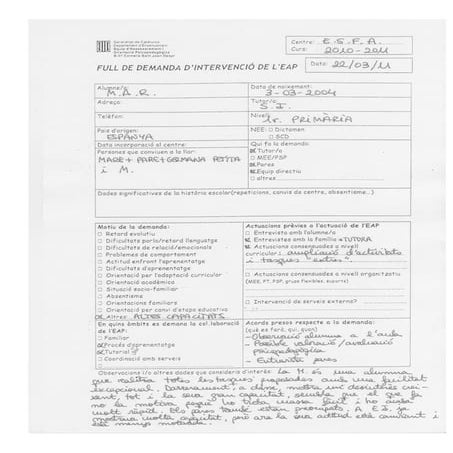 Generalitat de Catalunya
Departament d'Ensenyament
Centre: E.S.F.A.
Curs: 2010-2011
FULL DE DEMANDA D'INTERVENCIÓ DE L'EAP
Data: 22/03/11
Alumne/a
M.A.R.
Data de naixement:
3-03-2004
Adreça:
Tutor/a:
S.I.
Telèfon:
Nivell:
1r. PRIMÀRIA
País d'origen:
ESPANYA
NEE: □ Dictamen
□ SCD
Data incorporació al centre:
Qui fa la demanda:
Persones que conviuen a la llar:
MARE + PARE + GERMANA PETITA
i M.
Tutor/a
□ MEE/PSP
Pares
Equip directiu
□ altres
Dades significatives de la història escolar(repeticions, canvis de centre, absentisme..)
Motiu de la demanda:
□ Retard evolutiu
□ Dificultats parla/retard llenguatge
□ Dificultats de relació/emocionals
□ Problemes de comportament
□ Actitud enfront l'aprenentatge
□ Dificultats d'aprenentatge
□ Orientació per l'adaptació curricular
□ Orientació acadèmica
□ Situació socio-familiar
□ Absentisme
□ Orientacions familiars
□ Orientació per canvi d'etapa educativa
Altres: ALTES CAPACITATS
Actuacions prèvies a l'actuació de l'EAP
□ Entrevista amb l'alumne/a
Entrevistes amb la família + TUTORA
Actuacions consensuades a nivell
curricular: ampliació d'activitats
i tasques "extres".
□ Actuacions consensuades a nivell organitzatiu
(MEE, PT, PSP, grups flexibles, suports)
□ Intervenció de serveis externs?
En quins àmbits es demana la col.laboració
de l'EAP:
□ Familiar
Procés d'aprenentatge
Tutorial
□ Coordinació amb serveis
Acords presos respecte a la demanda:
(què es farà, qui, quan)
- Observació alumna a l'aula
- Possible valoració/avaluació
Psicopedagògica
- Entrevista pares
Observacions i/o altres dades que considera d'interès: La M. és una alumna
que realitza totes les tasques proposades amb una facilitat
excepcional. Darrerament, a classe, mostra un
tot i la seva gran capacitat, sembla que el que fa
no la motiva perquè no
molt ràpid. Els pares també estan preocupats. A E.I. ja
mostrava molta capacitat, però ara la seva actitud està canviant i
està menys motivada.